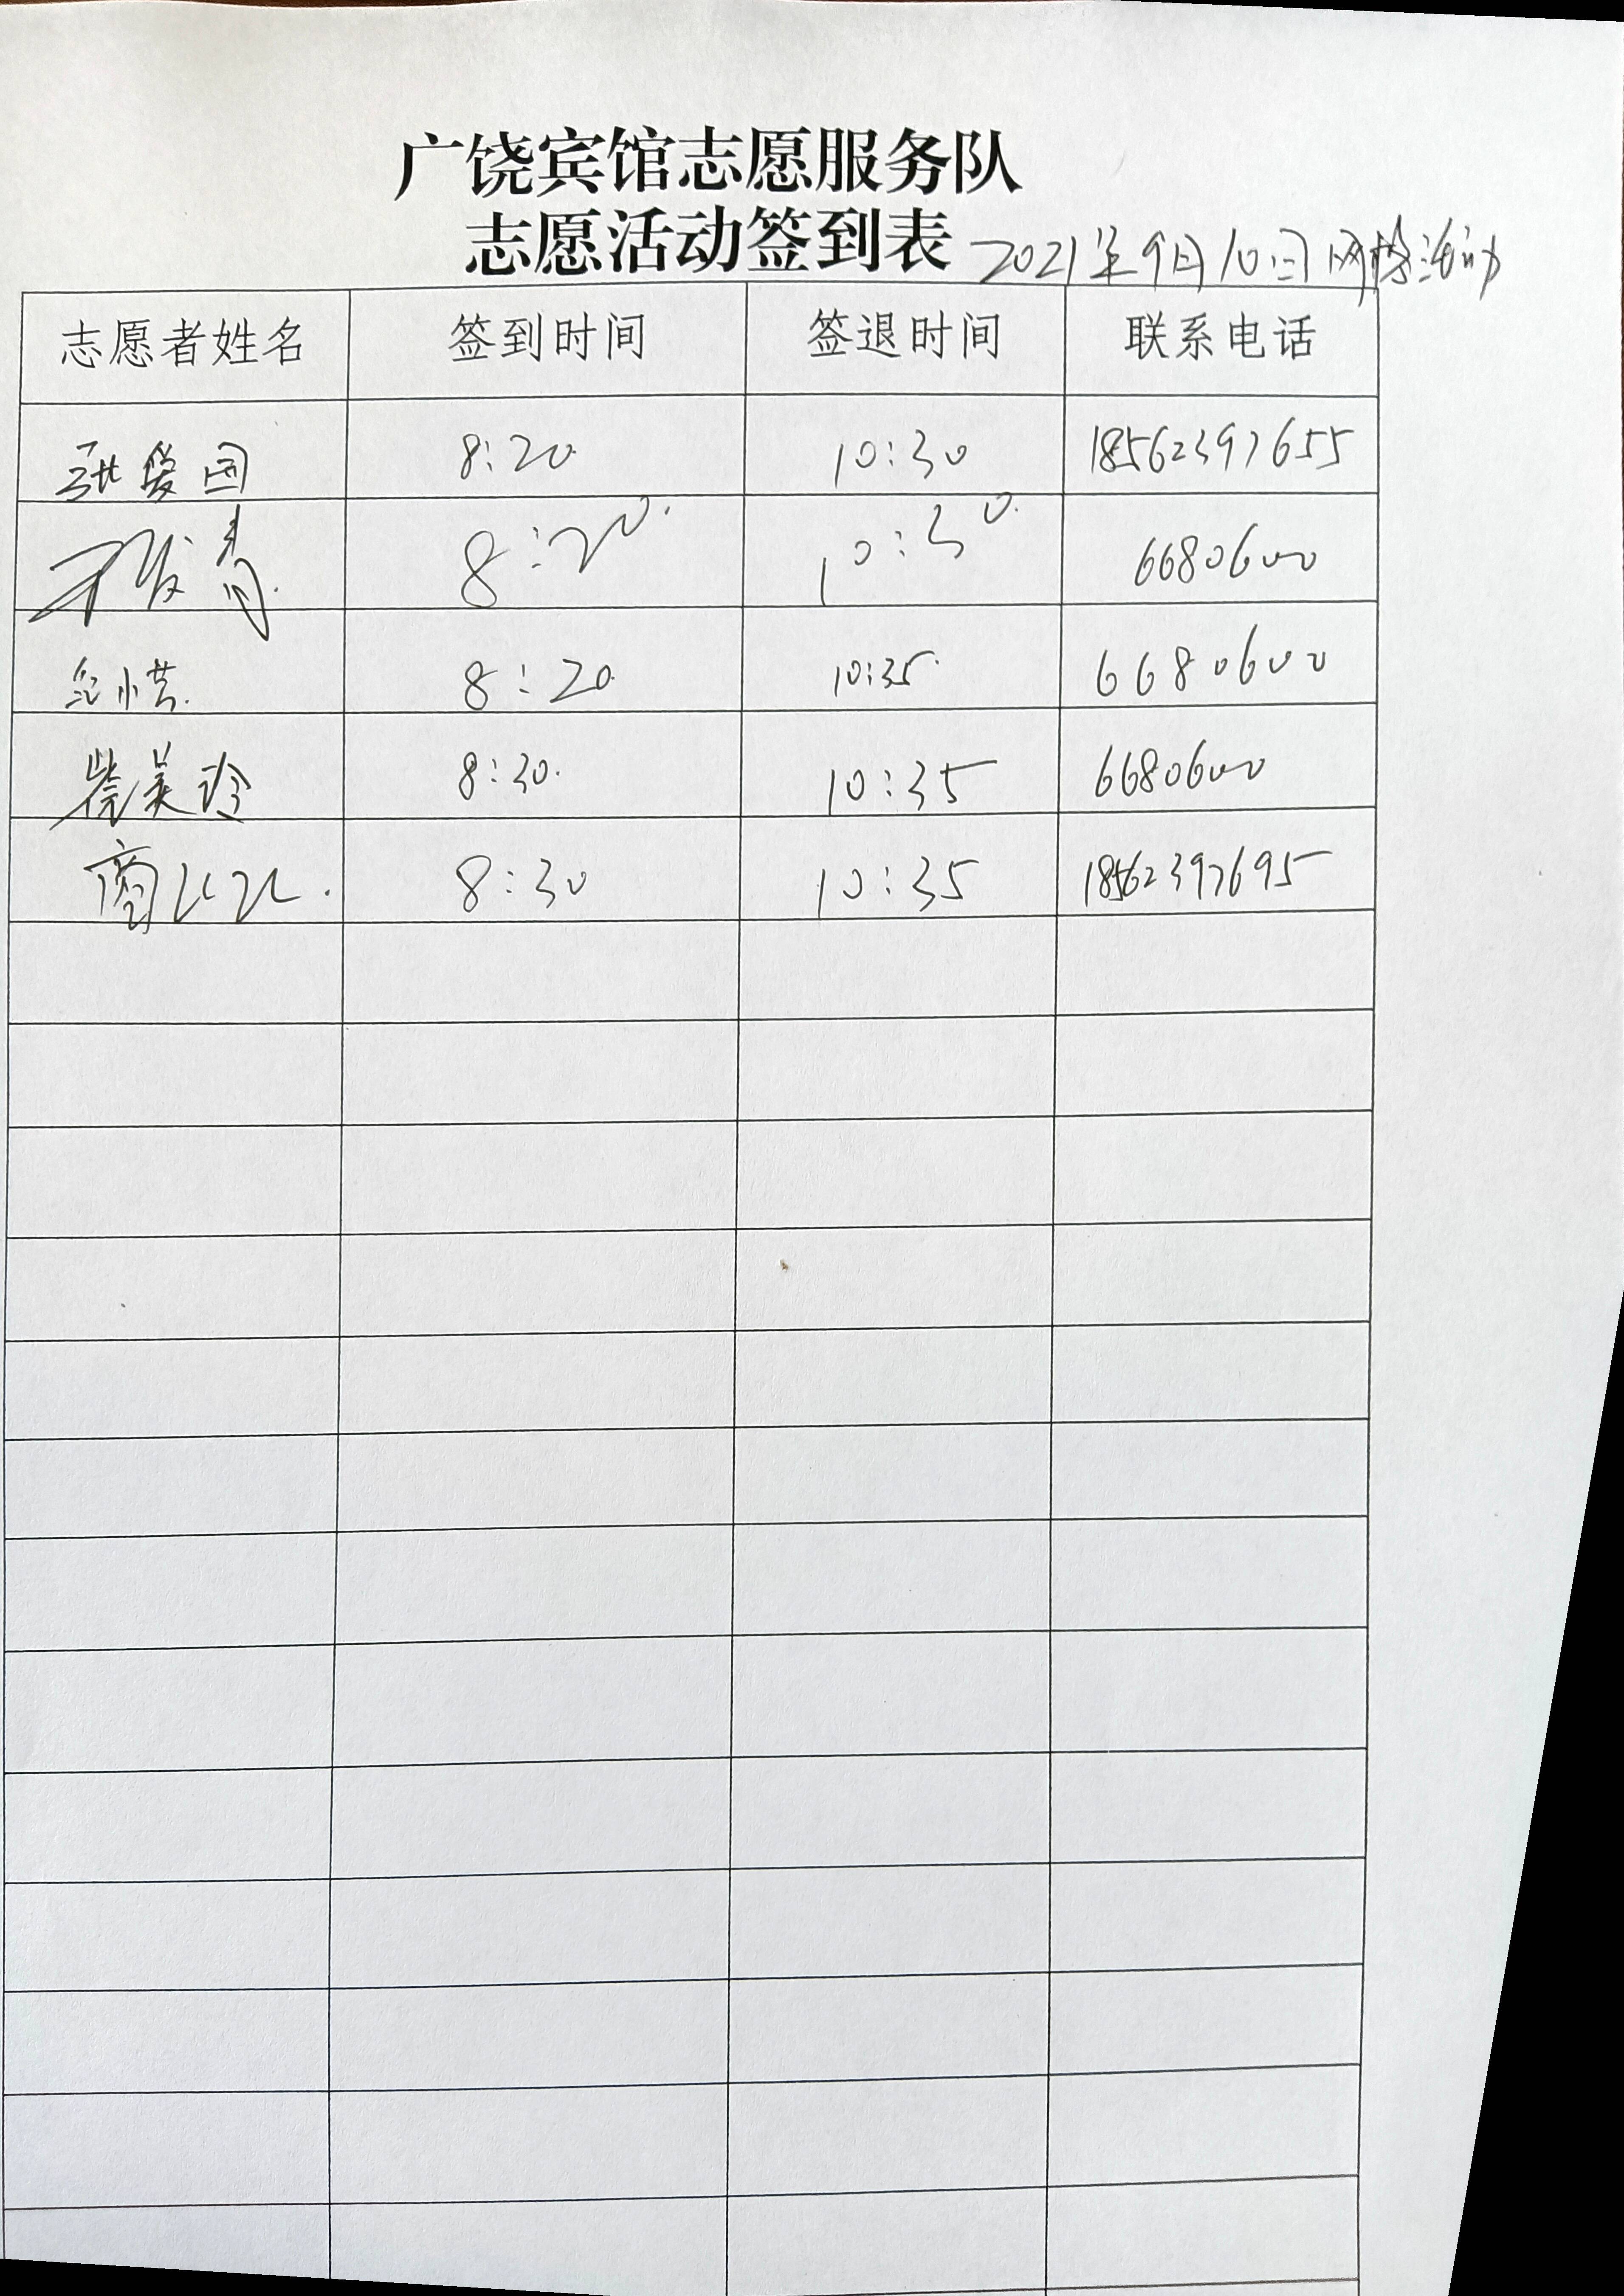 广饶宾馆志愿服务队
志愿活动签到表 2021年9月10日网格活动
志愿者姓名 签到时间 签退时间 联系电话
张爱国 8:20 10:30 18562397655
8:20 10:30 6680600
8:20 10:35 6680600
柴美玲 8:30 10:35 6680600
商 8:30 10:35 18562397695